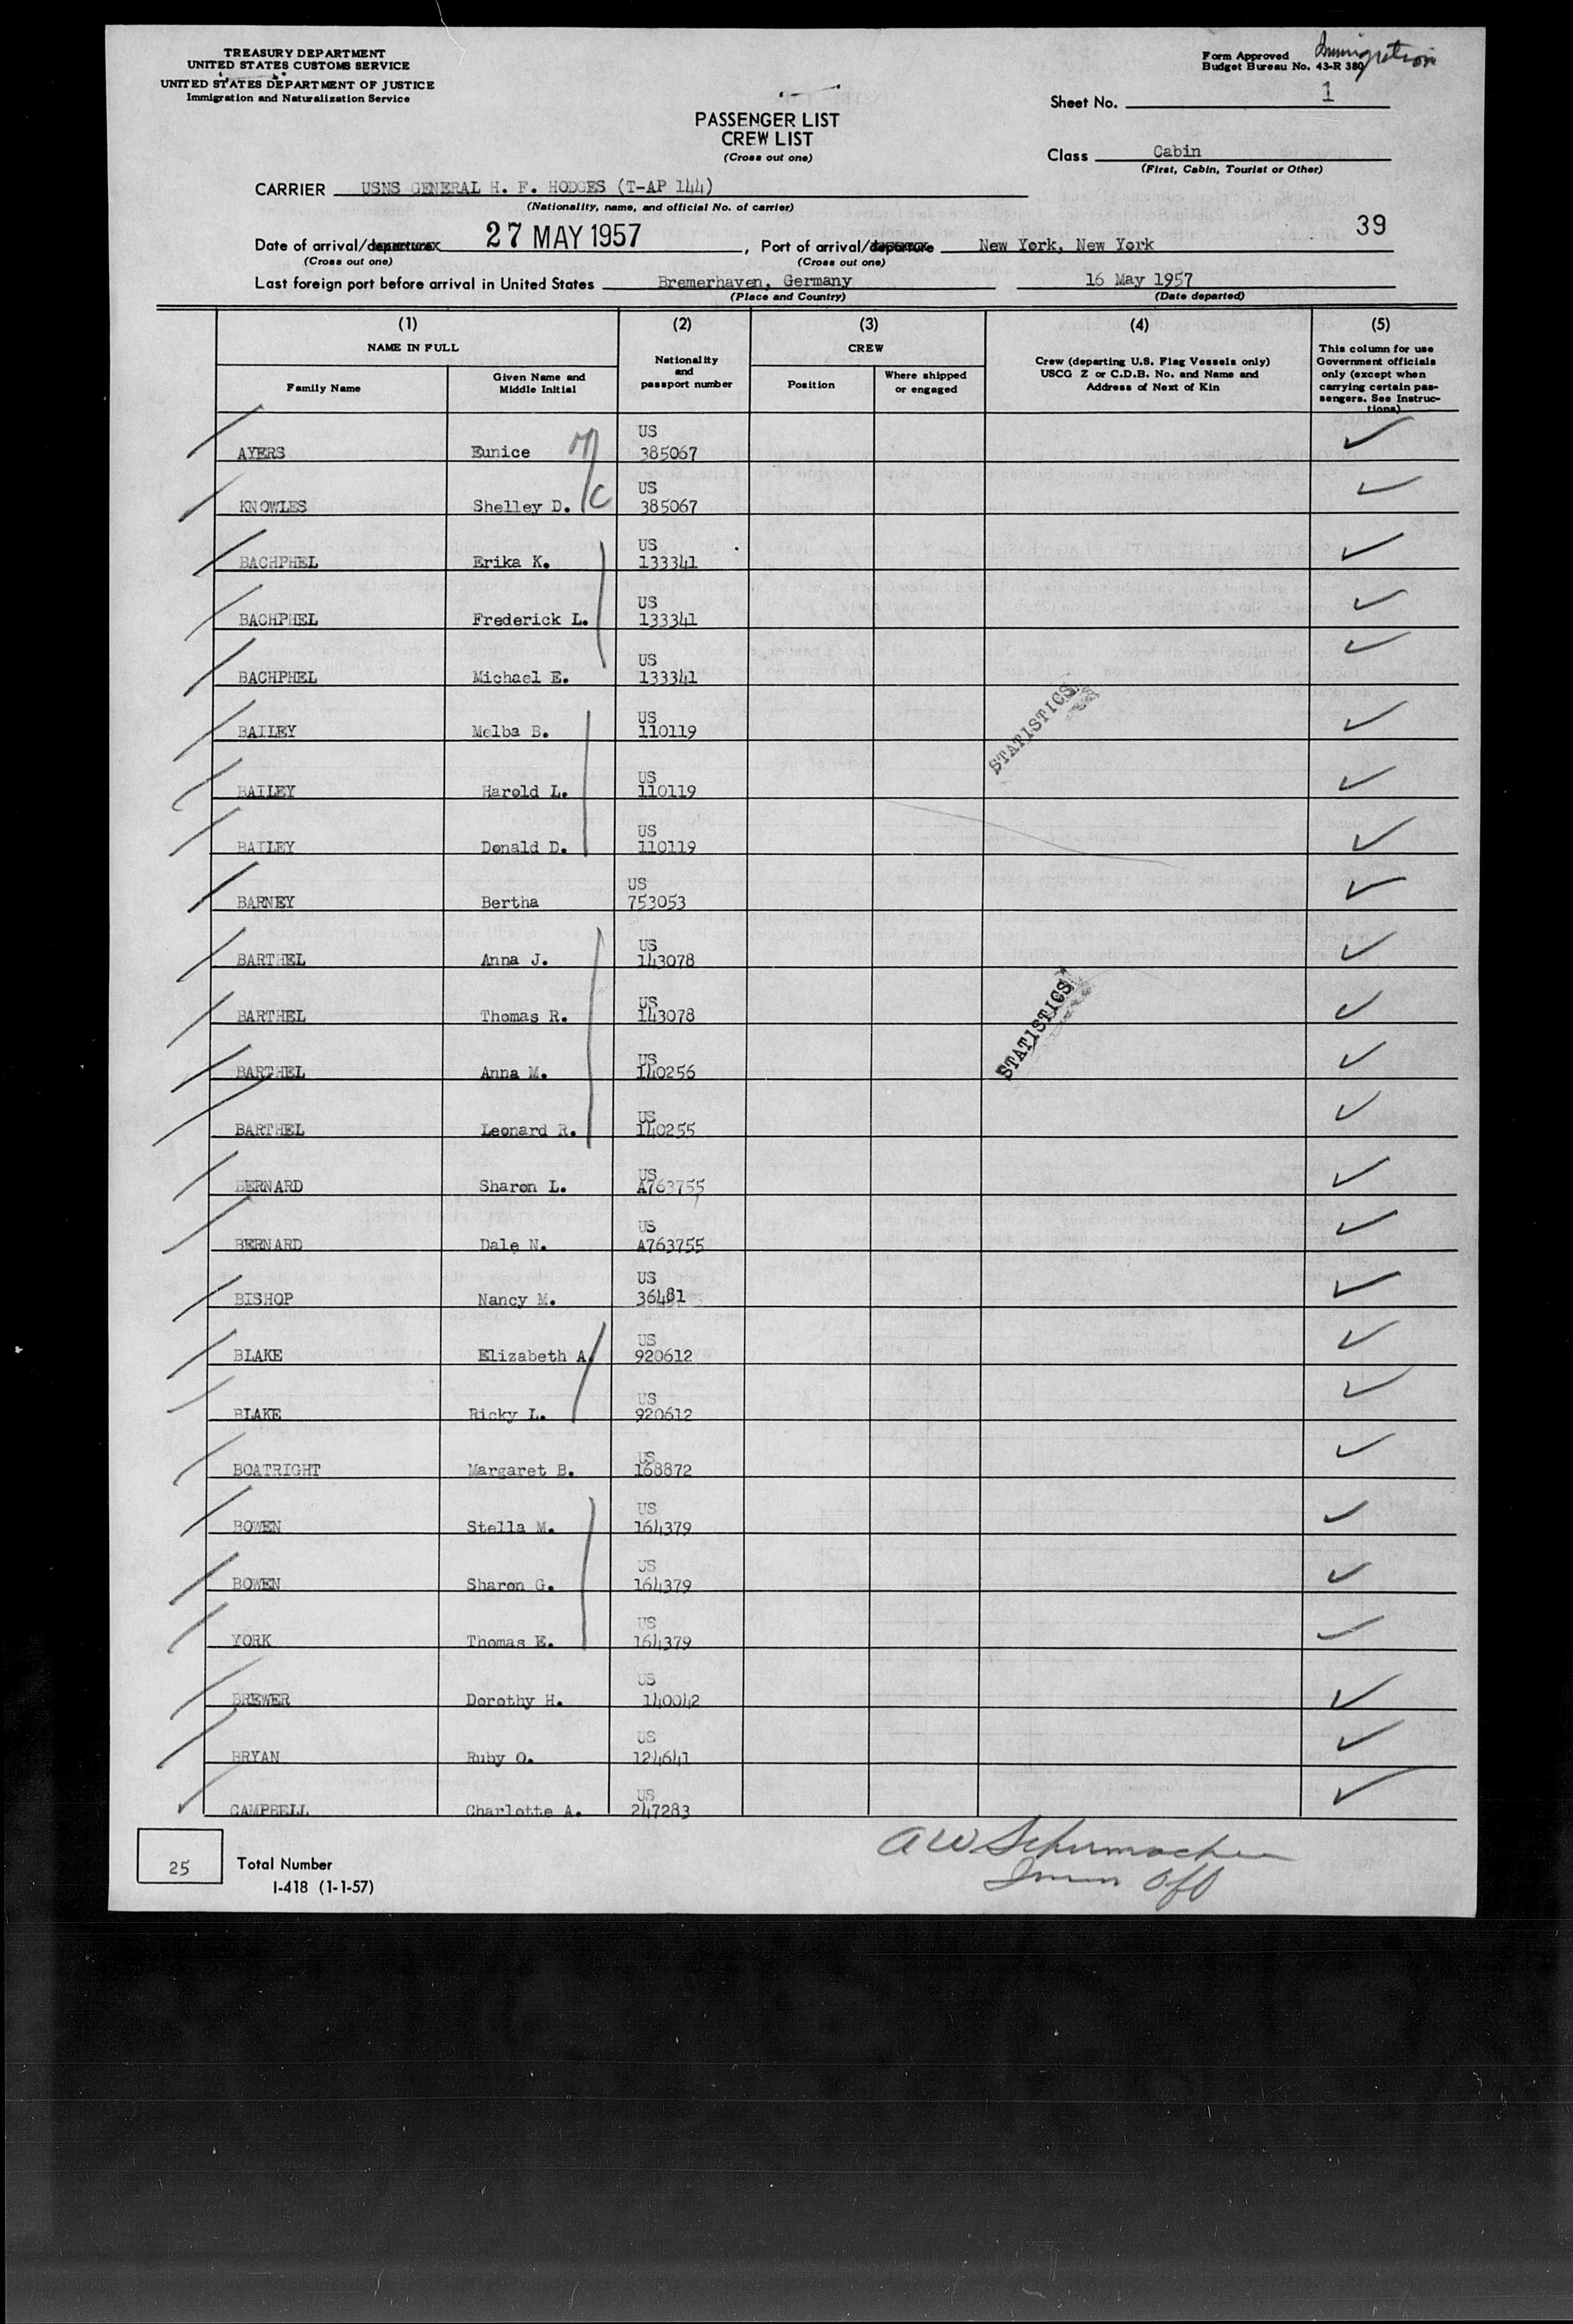 TREASURY DEPARTMENT
UNITED STATES CUSTOMS SERVICE
UNITED STATES DEPARTMENT OF JUSTICE
Immigration and Naturalization Service
Form Approved
Budget Bureau No. 43-R 380
Immigration
Sheet No. 1
PASSENGER LIST
CREW LIST
(Cross out one)
Class Cabin
(First, Cabin, Tourist or Other)
CARRIER USNS GENERAL H. F. HODGES (T-AP 144)
(Nationality, name, and official No. of carrier)
39
Date of arrival/departure 27 MAY 1957, Port of arrival/departure New York, New York
(Cross out one) (Cross out one)
Last foreign port before arrival in United States Bremerhaven, Germany 16 May 1957
(Place and Country) (Date departed)
(1) (2) (3) (4) (5)
NAME IN FULL
Family Name
Given Name and
Middle Initial
Nationality
and
passport number
CREW
Position
Where shipped
or engaged
Crew (departing U.S. Flag Vessels only)
USCG Z or C.D.B. No. and Name and
Address of Next of Kin
This column for use
Government officials
only (except when
carrying certain pas-
sengers. See Instruc-
tions)
US
AYERS Eunice M 385067
US
KNOWLES Shelley D. C 385067
US
BACHPHEL Erika K. 133341
US
BACHPHEL Frederick L. 133341
US
BACHPHEL Michael E. 133341
US
BAILEY Melba B. 110119
STATISTICS
US
BAILEY Harold L. 110119
US
BAILEY Donald D. 110119
US
BARNEY Bertha 753053
US
BARTHEL Anna J. 143078
US
BARTHEL Thomas R. 143078
STATISTICS
US
BARTHEL Anna M. 140256
US
BARTHEL Leonard R. 140255
US
BERNARD Sharon L. A763755
US
BERNARD Dale N. A763755
US
BISHOP Nancy M. 36481
US
BLAKE Elizabeth A. 920612
US
BLAKE Ricky L. 920612
US
BOATRIGHT Margaret B. 168872
US
BOWEN Stella M. 164379
US
BOWEN Sharon G. 164379
US
YORK Thomas E. 164379
US
BREWER Dorothy H. 140042
US
BRYAN Ruby O. 124641
US
CAMPBELL Charlotte A. 247283
25 Total Number
I-418 (1-1-57)
A W Schumacher
Imm Off